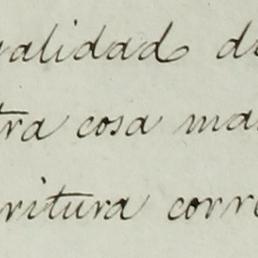 alidad d
tra cosa ma
ritura corr